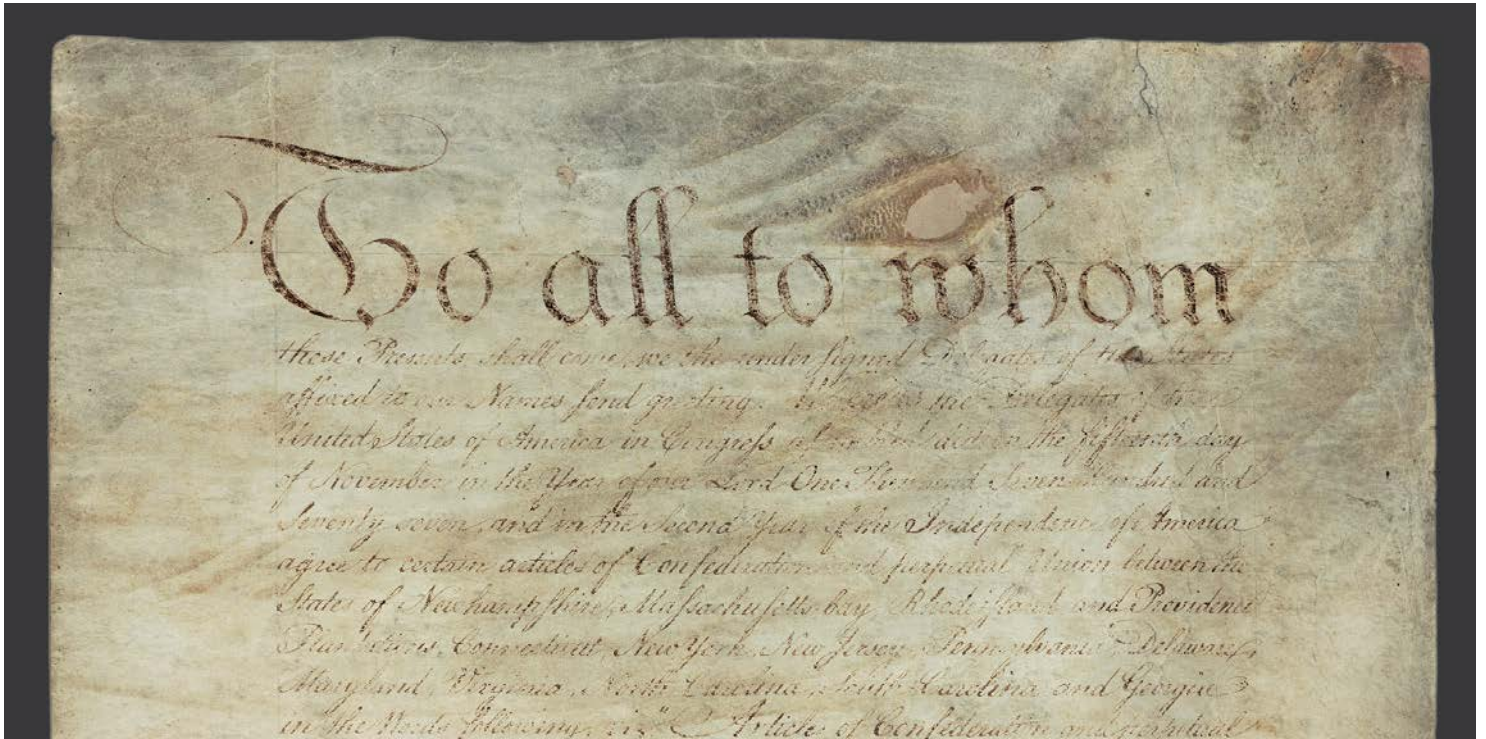 To all to whom
these Presents shall come, we the undersigned Delegates of the States
affixed to our Names send greeting. Whereas the Delegates of the
United States of America in Congress assembled did on the fifteenth day
of November in the Year of our Lord One Thousand Seven Hundred and
Seventy seven, and in the Second Year of the Independence of America
agree to certain articles of Confederation and perpetual Union between the
States of Newhampshire, Massachusetts-bay, Rhodeisland and Providence
Plantations, Connecticut, New York, New Jersey, Pennsylvania, Delaware,
Maryland, Virginia, North Carolina, South Carolina and Georgia
in the Words following, viz. Articles of Confederation and perpetual